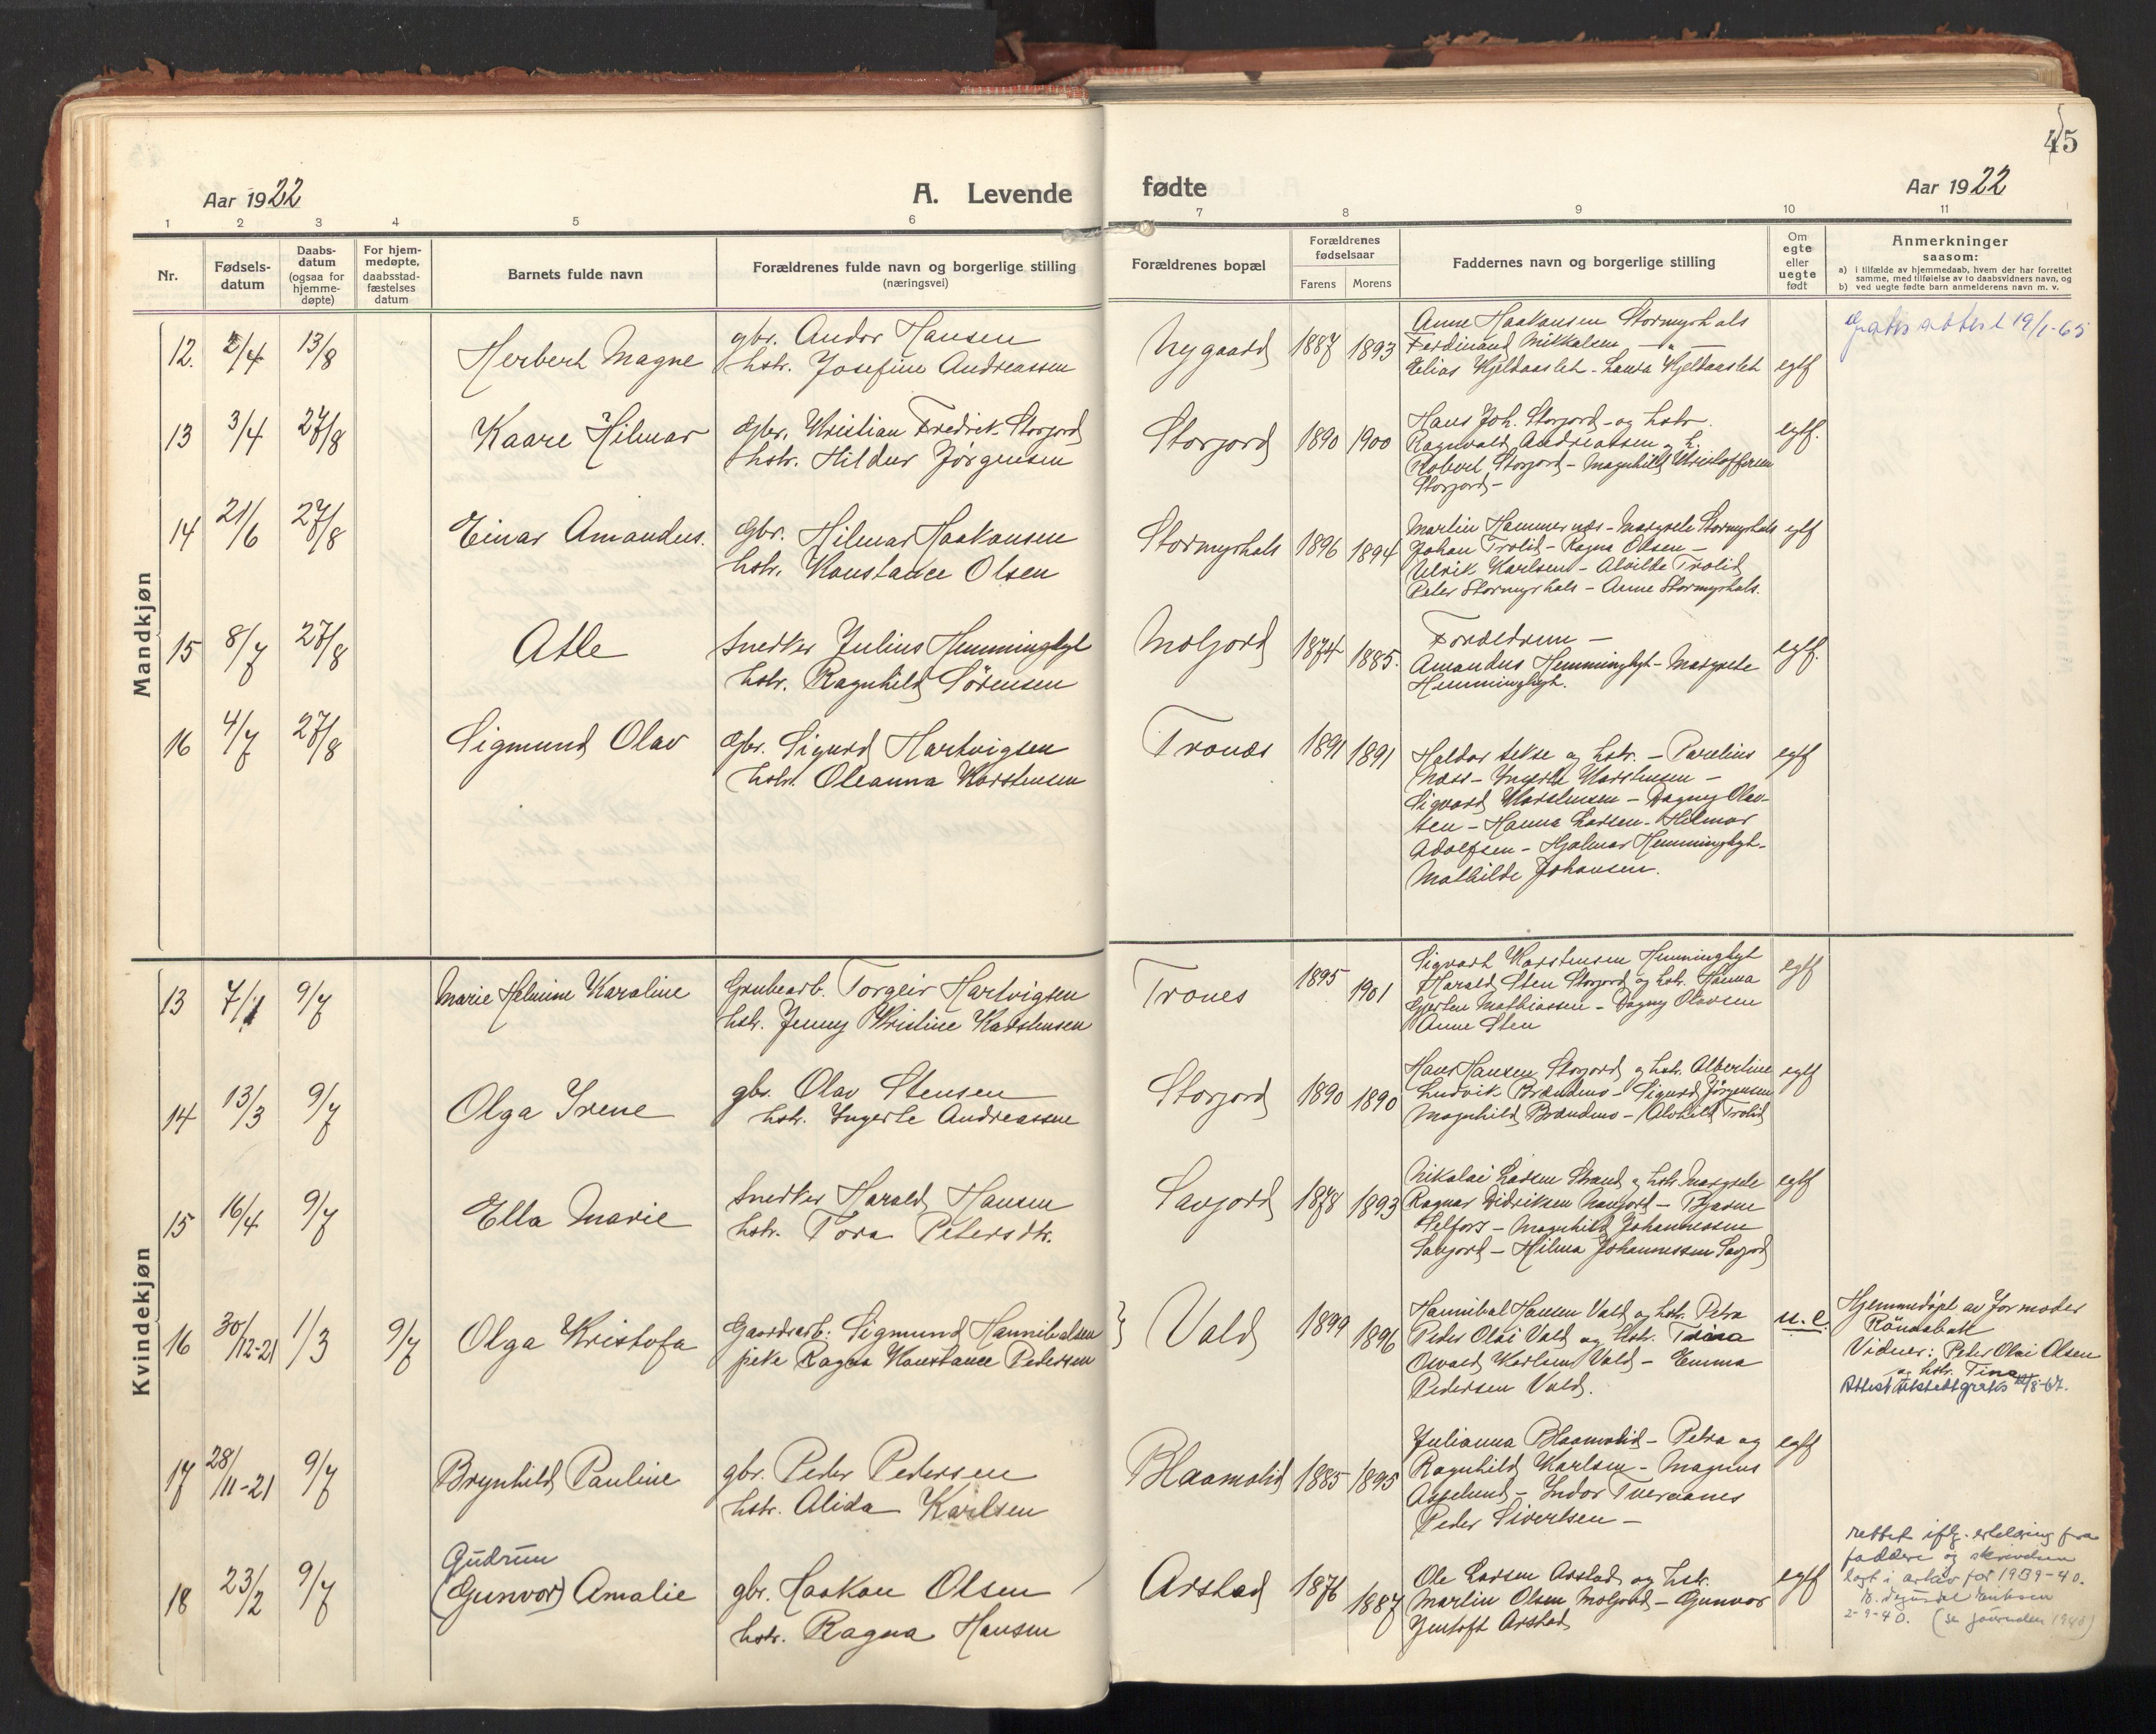 45
Aar 1922 A. Levende fødte Aar 1922
1 2 3 4 5 6 7 8 9 10 11
Nr.
Fødsels-
datum
Daabs-
datum
(ogsaa for
hjemme-
døpte)
For hjem-
medøpte,
daabsstad-
fæstelses
datum
Barnets fulde navn
Forældrenes fulde navn og borgerlige stilling
(næringsvei)
Forældrenes bopæl
Forældrenes
fødselsaar
Farens Morens
Faddernes navn og borgerlige stilling
Om
egte
eller
uegte
født
Anmerkninger
saasom:
a) i tilfælde av hjemmedaab, hvem der har forrettet
samme, med tilføielse av to daabsvidners navn, og
b) ved uegte fødte barn anmelderens navn m. v.
Mandkjøn
12. 2/4 13/8
Herbert Magne
gbr. Andor Hansen
hstr. Josefine Andreassen
Nygaard 1887 1893
Anne Haakonsen Stormyrhals
Ferdinand Mikkalsen — " —
Elias Kjeldaaslet - Laura Kjeldaaslet
egtf
Gratis attest 19/1-65
13 3/4 27/8
Kaare Hilmar
Gbr. Kristian Fredrik Storjord
hstr. Hildur Jørgensen
Storjord 1890 1900
Hans Joh. Storjord og hstr.
Ragnvald Andreassen og h.
Robert Storjord - Magnhild Kristoffersen
Storjord -
egtf.
14 21/6 27/8
Einar Amandus.
Gbr. Hilmar Haakonsen
hstr. Konstance Olsen
Stormyrhals 1896 1894
Martin Hammernes - Margrete Stormyrhals
Johan Trolid - Ragna Olsen -
Ulrik Karlsen - Alvilde Trolid
Peter Stormyrhals - Anne Stormyrhals.
egtf
15 8/7 27/8
Atle
Snedker Julius Hemmingbyt
hstr. Ragnhild Sörensen
Moljord 1874 1885.
Forældrene -
Amandus Hemmingbyt - Margrete
Hemmingbyt.
egtf.
16 4/7 27/8
Sigmund Olav
Gbr. Sigurd Hartvigsen
hstr. Oleanna Karstensen
Trones 1891 1891
Haldor Sekse og hstr. - Parelius
Næss - Ingerle Karstensen -
Sigvard Karstensen - Dagny Olav-
sen - Hanna Larsen - Hilmar
Adolfsen - Hjalmar Hemmingbyt -
Mathilde Johansen.
egtf
Kvindekjøn
13 7/1 9/7
Marie Helmine Karoline
Grubearb. Torgeir Hartvigsen
hstr. Jenny Kristine Karstensen
Trones 1895 1901
Sigvart Karstensen Hemmingbyt
Harald Sten Storjord og hstr. Hanna
Gjerten Mathiassen - Dagny Olavsen
Anne Sten
egtf
14 13/3 9/7
Olga Irene
gbr. Olav Stensen
hstr. Ingerle Andreassen
Storjord 1890 1890
Hans Hansen Storjord og hstr. Albertine
Ludvik Brændmo - Sigurd Jörgensen
Magnhild Brændmo - Alvhild Trolid
egtf
15 16/4 9/7
Ella Marie
Snedker Harald Hansen
hstr. Tora Petersdtr.
Savjord 1878 1893
Nikolai Larsen Strand og hstr. Margrete
Ragnar Didriksen Navjord - Bjarne
Selfors - Magnhild Johannessen
Savjord - Hilma Johannessen Savjord
egtf
16 30/12-21 1/3 9/7
Olga Kristofa
Gaardsarb. Sigmund Hannibalsen
pike Ragna Konstance Pedersen
} Vald 1899 1896
Hannibal Hansen Vald og hstr. Petra
Peder Olai Vald og hstr. Trina
Osvald Karlsen Vald - Emma
Pedersen Vald.
u. e.
Hjemmedöpt av Jormoder
Rönnabakk
Vidner: Peter Olai Olsen
og hstr. Tina
Attest utstedt gratis /8-67.
17 28/11-21 9/7
Brynhild Pauline
gbr. Peder Pedersen
hstr. Alida Karlsen
Blaamolid 1885 1895
Julianna Blaamolid - Petra og
Ragnhild Karlsen - Magnus
Aspelund - Indor Tveraanes
Peder Sivertsen -
egtf
18 23/2 9/7
Gudrun
(Gunvor) Amalie
gbr. Haakon Olsen
hstr. Ragna Hansen
Arstad 1876 1887
Ole Larsen Arstad og hstr.
Martin Olsen Moljord - Gunvor
Jentoft Arstad
egtf
rettet iflg. erklæring fra
faddere og skrivelse
lagt i arkiv for 1939-40.
2-9-40. (se journalen 1940)